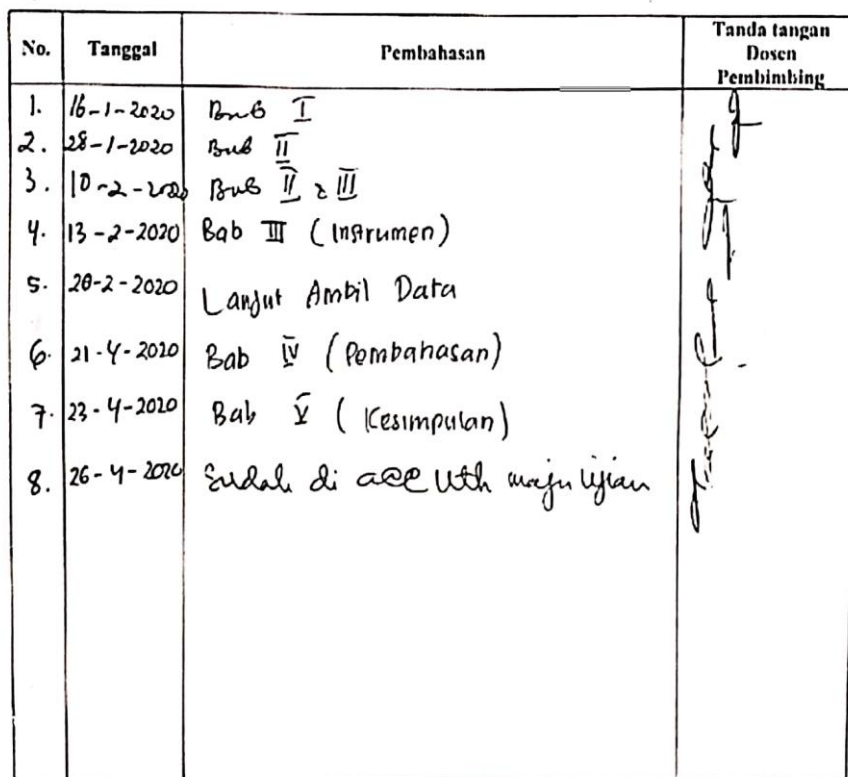 No. Tanggal Pembahasan Tanda tangan Dosen Pembimbing
1. 16-1-2020 Bab I
2. 28-1-2020 Bab II
3. 10-2-2020 Bab II & III
4. 13-2-2020 Bab III (Instrumen)
5. 20-2-2020 Lanjut Ambil Data
6. 21-4-2020 Bab IV (Pembahasan)
7. 23-4-2020 Bab V (Kesimpulan)
8. 26-4-2020 Sudah di acc utk maju Ujian